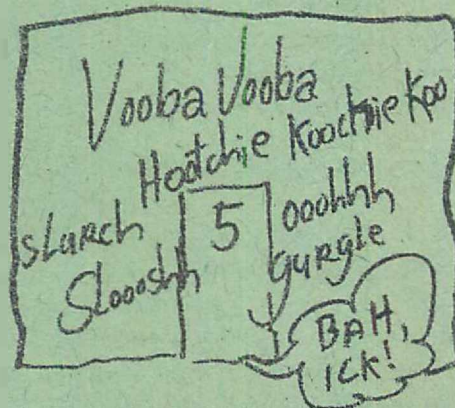 Vooba Vooba
Hootchie Koochie Koo
slurch
5
ooohhh
Sloooshh
gurgle
BAH,
ICK!